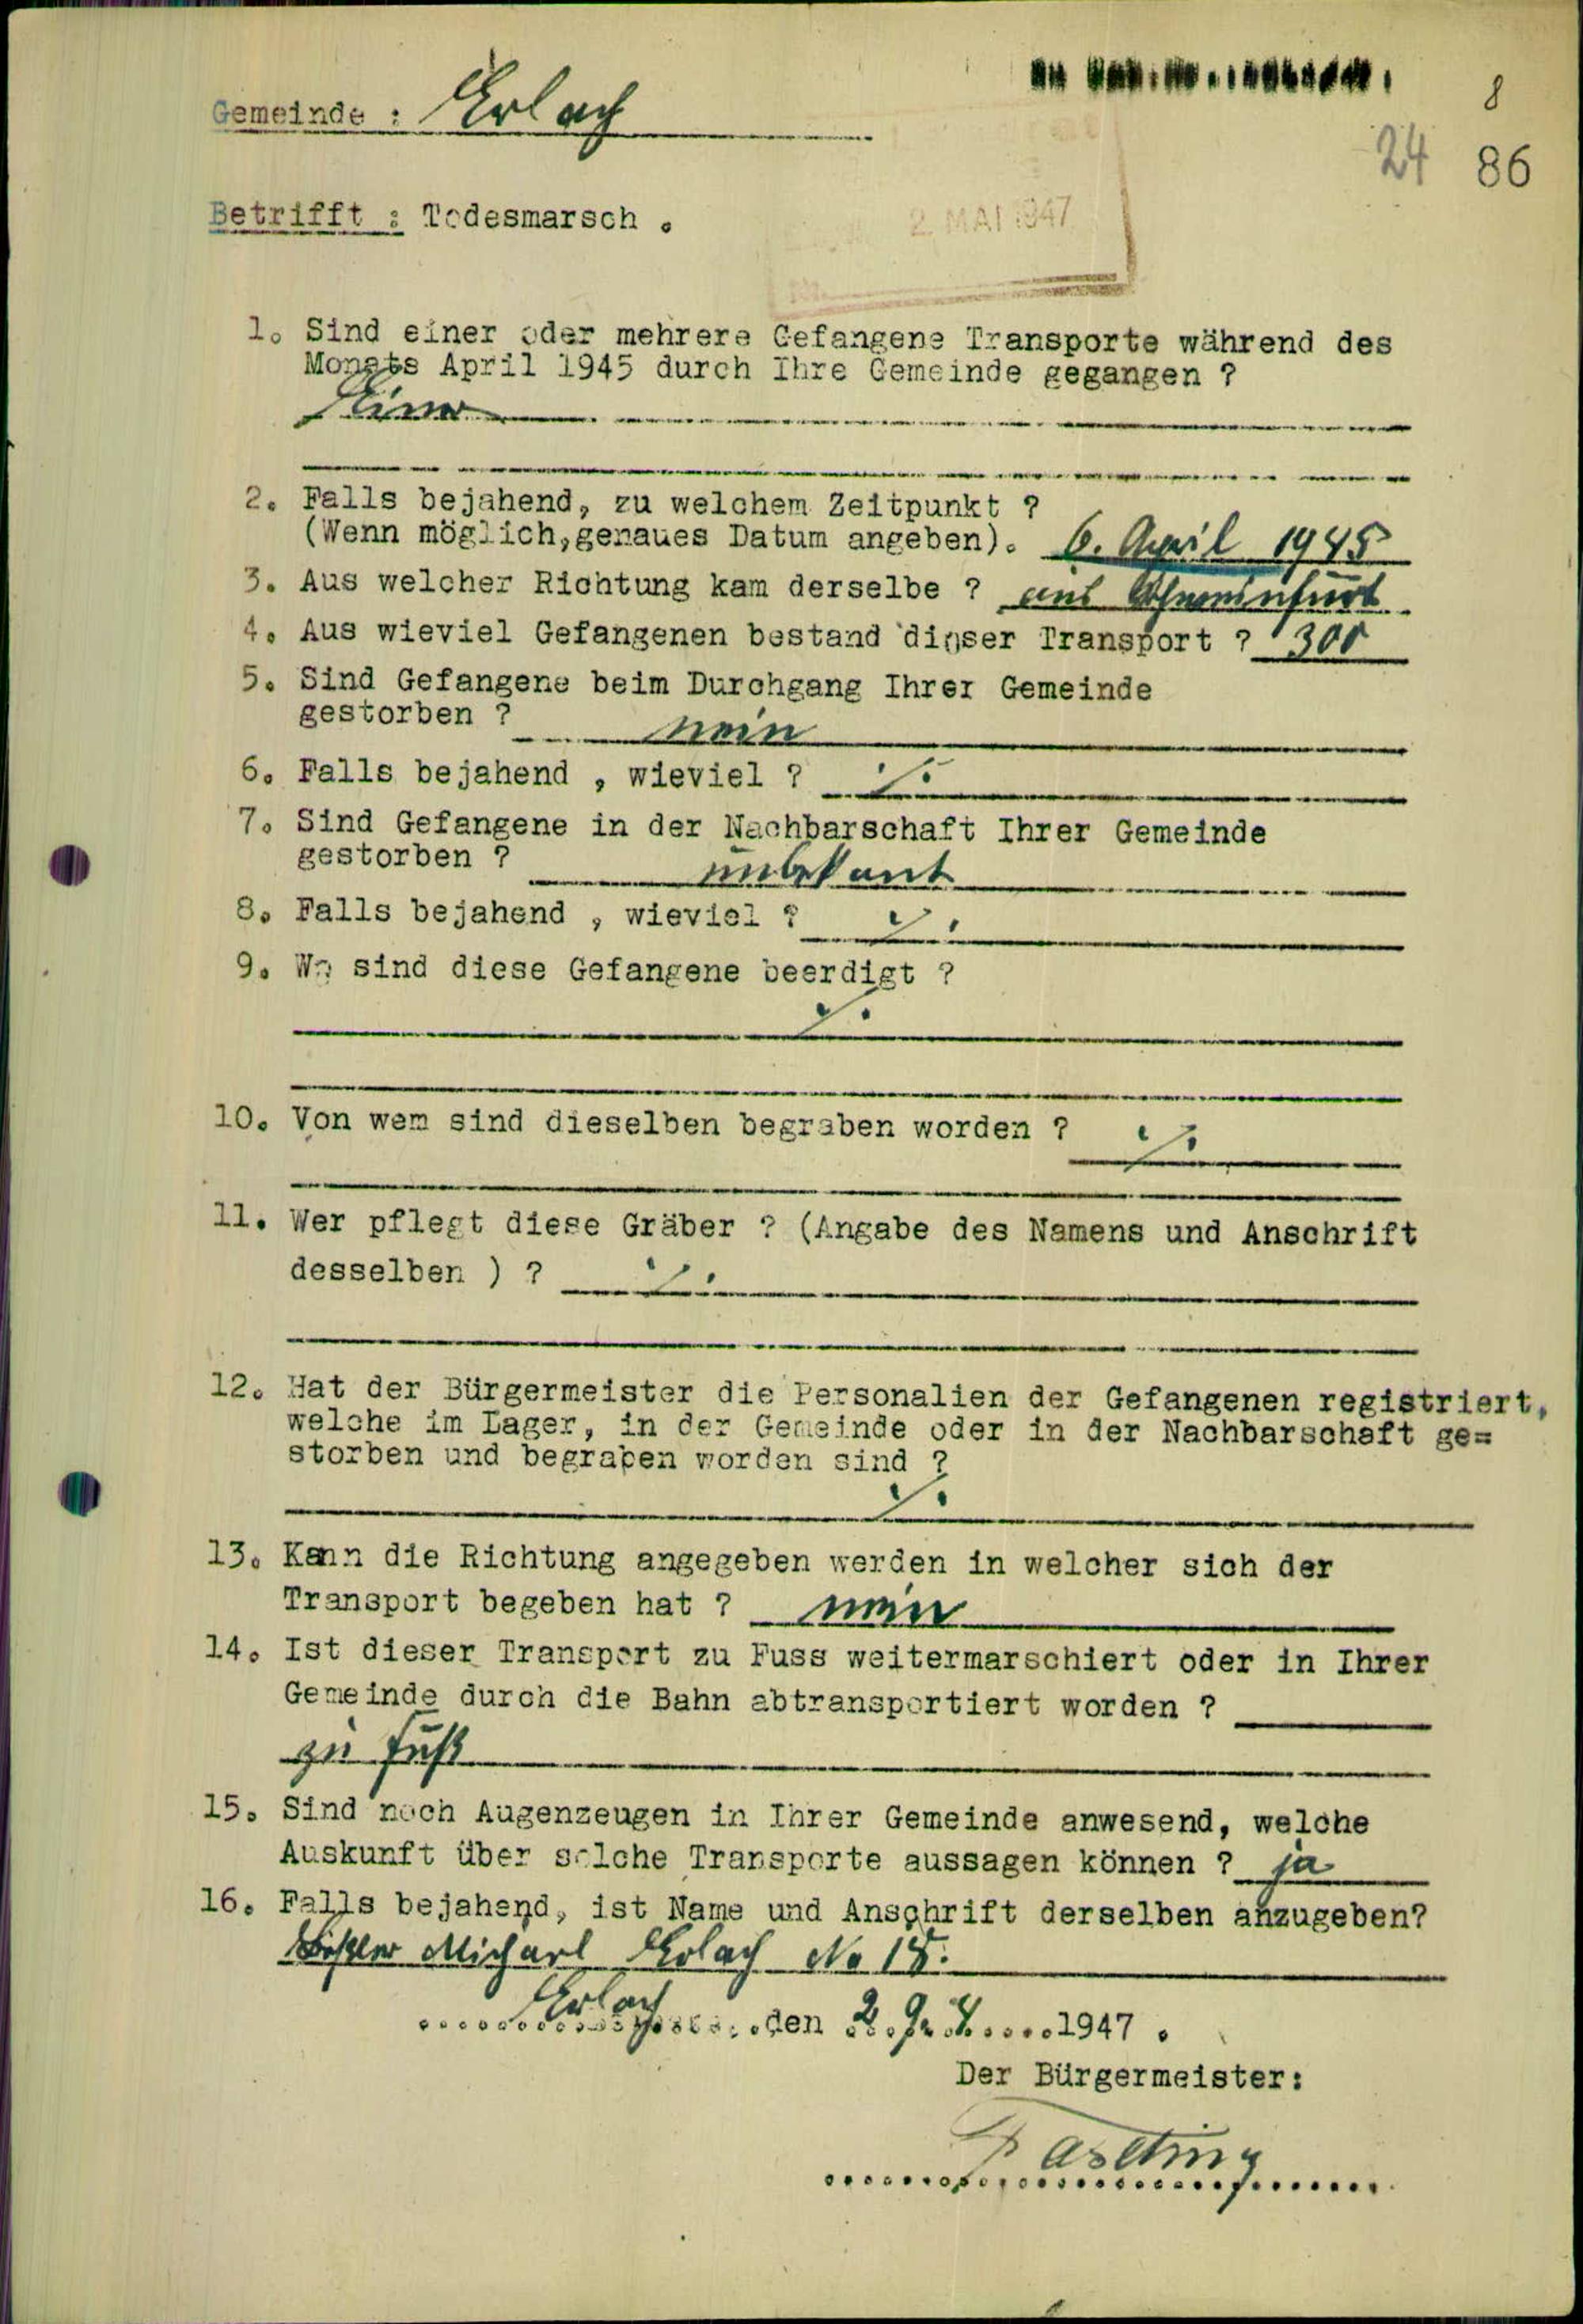 8
Gemeinde : Erlach
24 86
Betrifft : Todesmarsch .
2. MAI 1947
1. Sind einer oder mehrere Gefangene Transporte während des
Monats April 1945 durch Ihre Gemeinde gegangen ?
Einer
2. Falls bejahend, zu welchem Zeitpunkt ?
(Wenn möglich,genaues Datum angeben). 6. April 1945
3. Aus welcher Richtung kam derselbe ? aus Schweinfurt
4. Aus wieviel Gefangenen bestand dieser Transport ? 300
5. Sind Gefangene beim Durchgang Ihrer Gemeinde
gestorben ? nein
6. Falls bejahend , wieviel ? ./.
7. Sind Gefangene in der Nachbarschaft Ihrer Gemeinde
gestorben ? unbekant
8. Falls bejahend , wieviel ? ./.
9. Wo sind diese Gefangene beerdigt ?
./.
10. Von wem sind dieselben begraben worden ? ./.
11. Wer pflegt diese Gräber ? (Angabe des Namens und Anschrift
desselben ) ? ./.
12. Hat der Bürgermeister die Personalien der Gefangenen registriert,
welche im Lager, in der Gemeinde oder in der Nachbarschaft ge=
storben und begraben worden sind ?
./.
13. Kann die Richtung angegeben werden in welcher sich der
Transport begeben hat ? nein
14. Ist dieser Transport zu Fuss weitermarschiert oder in Ihrer
Gemeinde durch die Bahn abtransportiert worden ?
zu Fuß
15. Sind noch Augenzeugen in Ihrer Gemeinde anwesend, welche
Auskunft über solche Transporte aussagen können ? ja
16. Falls bejahend, ist Name und Anschrift derselben anzugeben?
Michael Erlach No 18.
Erlach den 2. 1947 .
Der Bürgermeister: